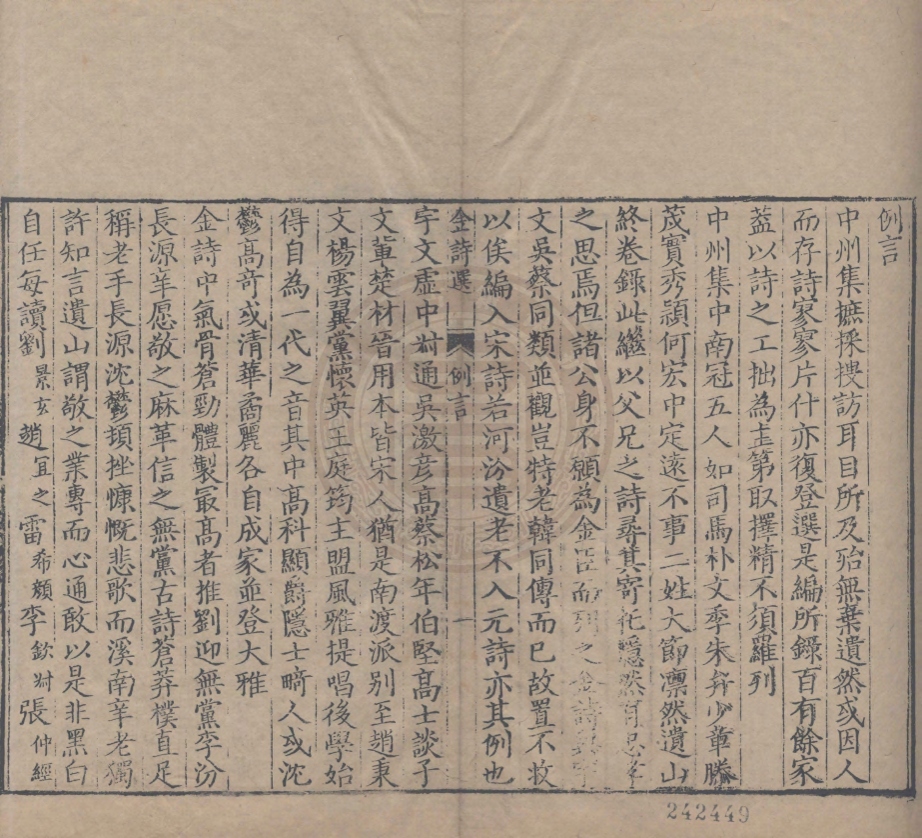 例言
中州集摭採搜訪耳目所及殆無棄遺然或因人
而存詩寥寥片什亦復登選是編所錄百有餘家
葢以詩之工拙為主第取擇精不須羅列
中州集中南冠五人如司馬朴文季朱弁少章滕
茂實秀頴何宏中定遠不事二姓大節凛然遺山
終卷錄此繼以父兄之詩尋其寄托隱然有
之思焉但諸公身不願為金臣而列之金詩
文吳蔡同類並觀豈特老韓同傳而已故置不收
以俟編入宋詩若河汾遺老不入元詩亦其例也
金詩選 例言 一
宇文虚中叔通吳激彦髙蔡松年伯堅髙士談子
文軰楚材晉用本皆宋人猶是南渡派别至趙秉
文楊雲翼黨懷英王庭筠主盟風雅提唱後學始
得自為一代之音其中髙科顯爵隱士畸人或沈
鬱髙竒或清華矞麗各自成家並登大雅
金詩中氣骨蒼勁體製最髙者推劉迎無黨李汾
長源辛愿敬之麻革信之無黨古詩蒼莽樸直足
稱老手長源沈鬱頓挫慷慨悲歌而溪南辛老獨
許知言遺山謂敬之業專而心通敢以是非黑白
自任每讀劉景玄趙宜之雷希顔李欽叔張仲經
242449